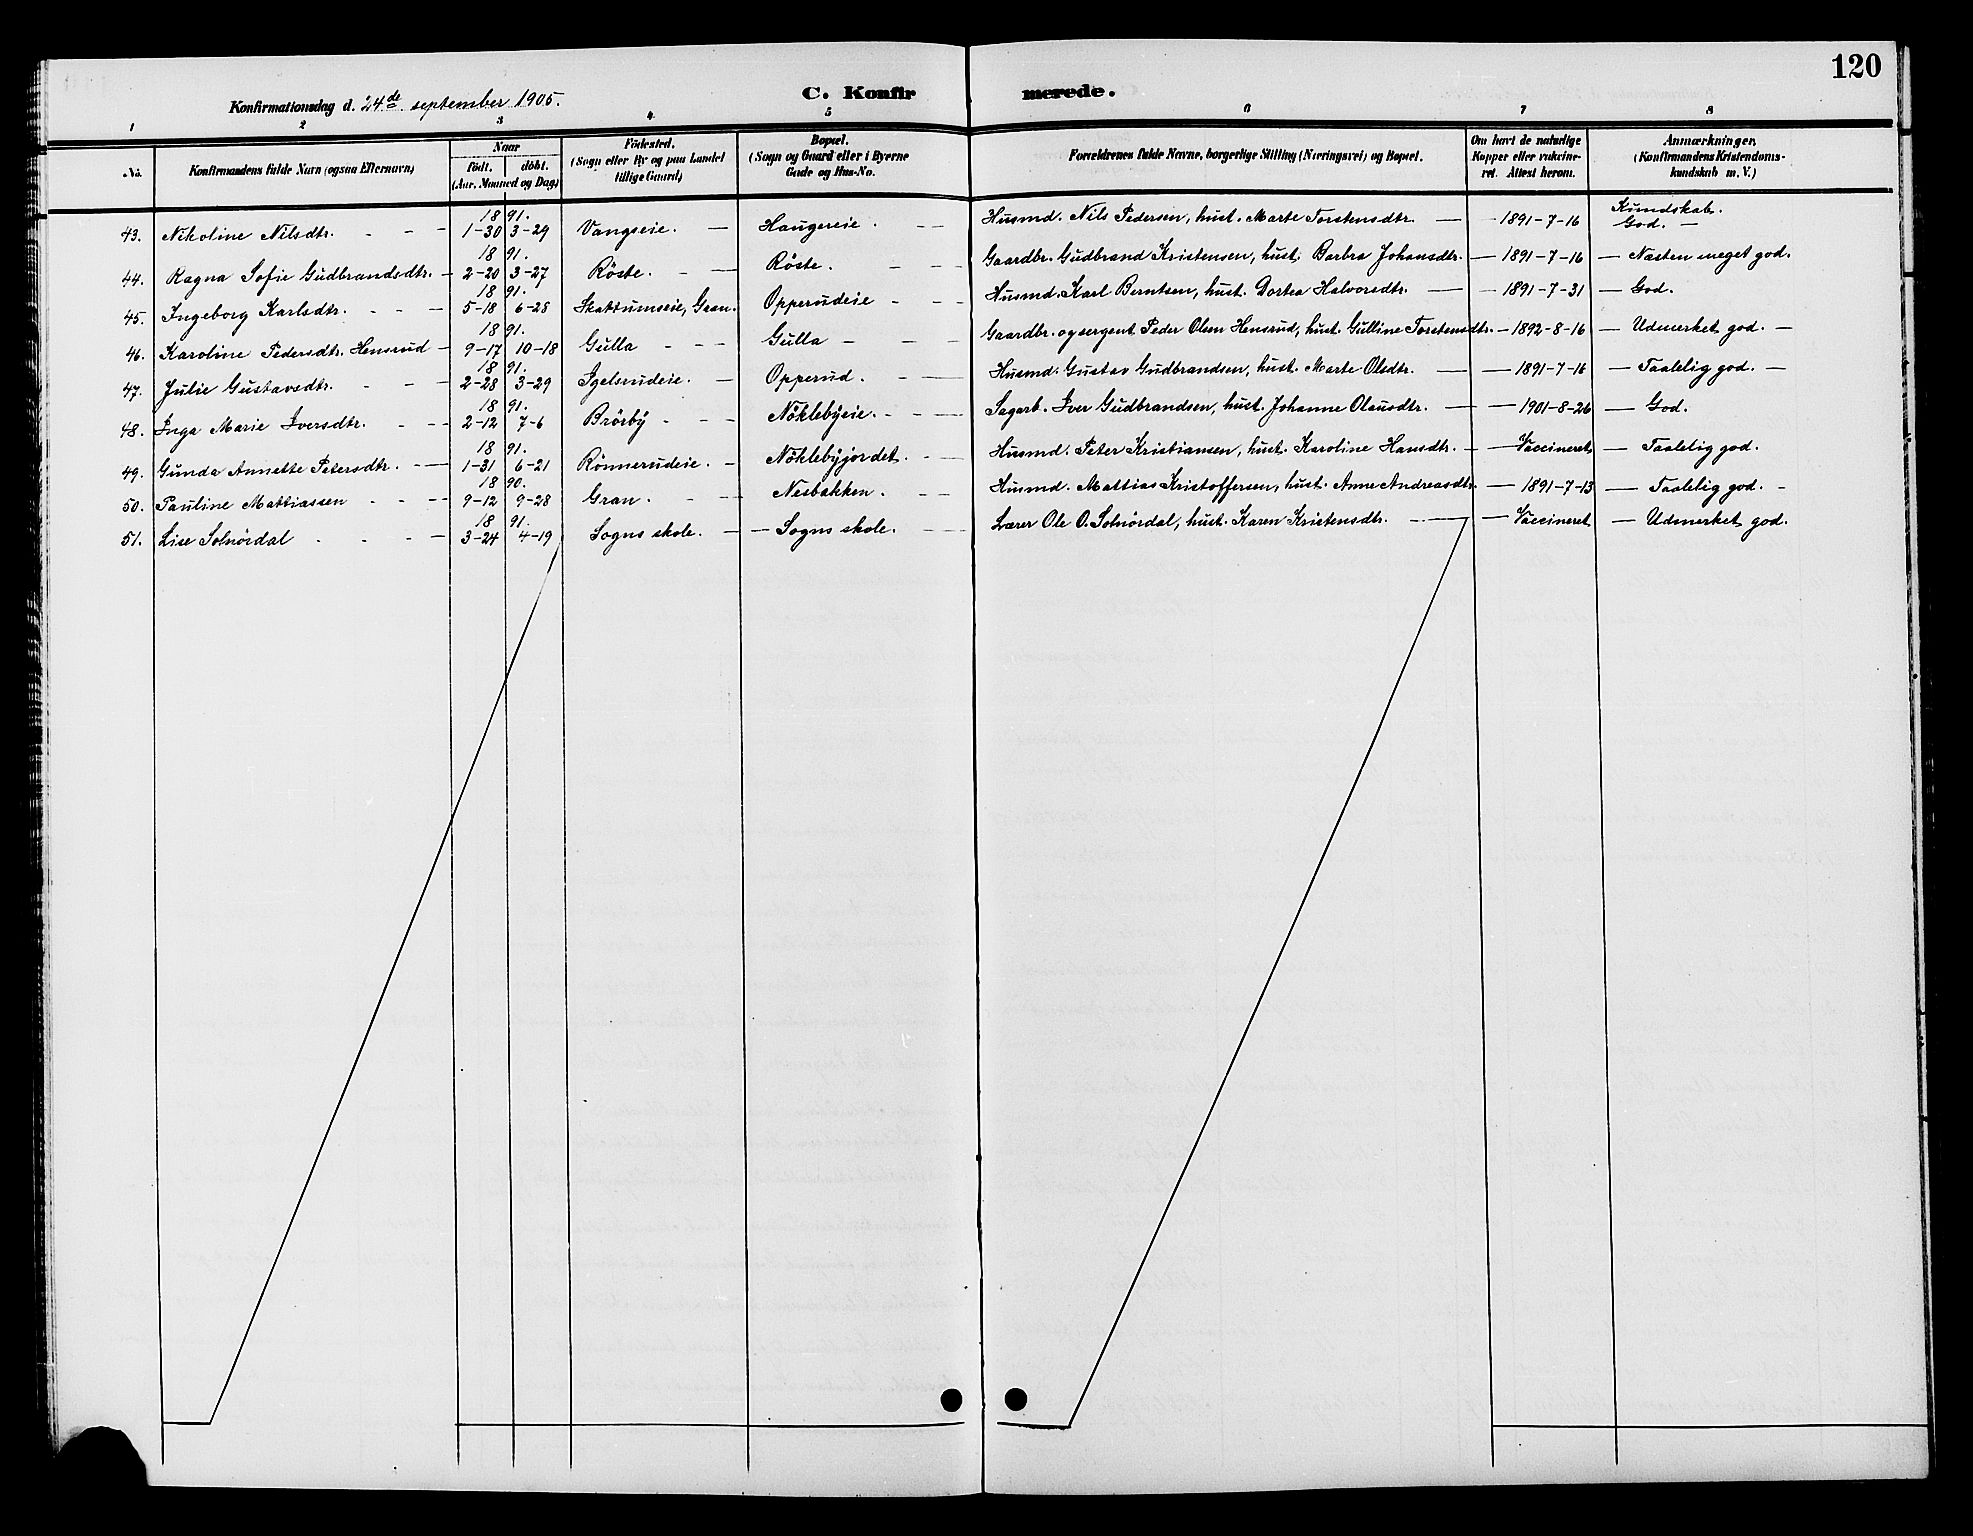 120
Konfirmationsdag d. 24de september 1905. C. Konfirmerede.
1 2 3 4 5 6 7 8
No. Konfirmandens fulde Navn (ogsaa Efternavn) Naar født. døbt. (Aar, Maaned og Dag) Fødested. (Sogn eller By og paa Landet tillige Gaard) Bopæl. (Sogn og Gaard eller i Byerne Gade og Hus-No. Forældrenes fulde Navne, borgerlige Stilling (Næringsvei) og Bopæl. Om havt de naturlige Kopper eller vakcineret. Attest herom. Anmærkninger. (Konfirmandens Kristendomskundskab m. V.)
Kundskab.
43. Nikoline Nilsdtr. - - - 1891. 1-30 3-29 Vangseie. - Haugereie. - - Husmd. Nils Pedersen, hust. Marte Torstensdtr. - - 1891-7-16 God. -
44. Ragna Sofie Gudbrandsdtr. - 1891. 2-20 3-27 Röste. - - Röste. - - Gaardbr. Gudbrand Kristensen, hust. Barbra Johansdtr. - - 1891-7-16 - Næsten meget god.
45. Ingeborg Karlsdtr. - - - 1891. 5-18 6-28 Skattumseie, Gran. Opperudeie - - Husmd. Karl Berntsen, hust. Dortea Halvorsdtr. - - 1891-7-31 - God.
46. Karoline Pedersdtr. Hensrud - 1891. 9-17 10-18 Gulla - - - Gulla - - - Gaardbr. og sergent Peder Olsen Hensrud, hust. Gulline Torstensdtr. - 1892-8-16 - Udmerket god. -
47. Julie Gustavsdtr. - - - 1891. 2-28 3-29 Igelsrudeie. - Opperud. - - Husmd. Gustav Gudbrandsen, hust. Marte Olsdtr. - - 1891-7-16 - Taalelig god. -
48. Inga Marie Iversdtr. - - - 1891. 2-12 7-6 Brörby - - - Nöklebyeie. - - - Sagarb. Iver Gudbrandsen, hust. Johanne Olausdtr. - - 1901-8-26 - God.
49. Gunda Annette Petersdtr. - - 1891. 1-31 6-21 Rönnerudeie. - Nöklebyjordet. - - Husmd. Peter Kristiansen, hust. Karoline Hansdtr. - - Vaccineret - Taalelig god.
50. Pauline Mattiassen - - - 1890. 9-12 9-28 Gran. - - Nesbakken. - - Husmd. Mattias Kristoffersen, hust. Anne Andreasdtr. - 1891-7-13 - Taalelig god. -
51. Lise Solnördal - - - - 1891. 3-24 4-19 Sogns skole. - - Sogns skole. - - Lærer Ole O. Solnördal, hust. Karen Kristensdtr. - - - Vaccineret - Udmerket god.